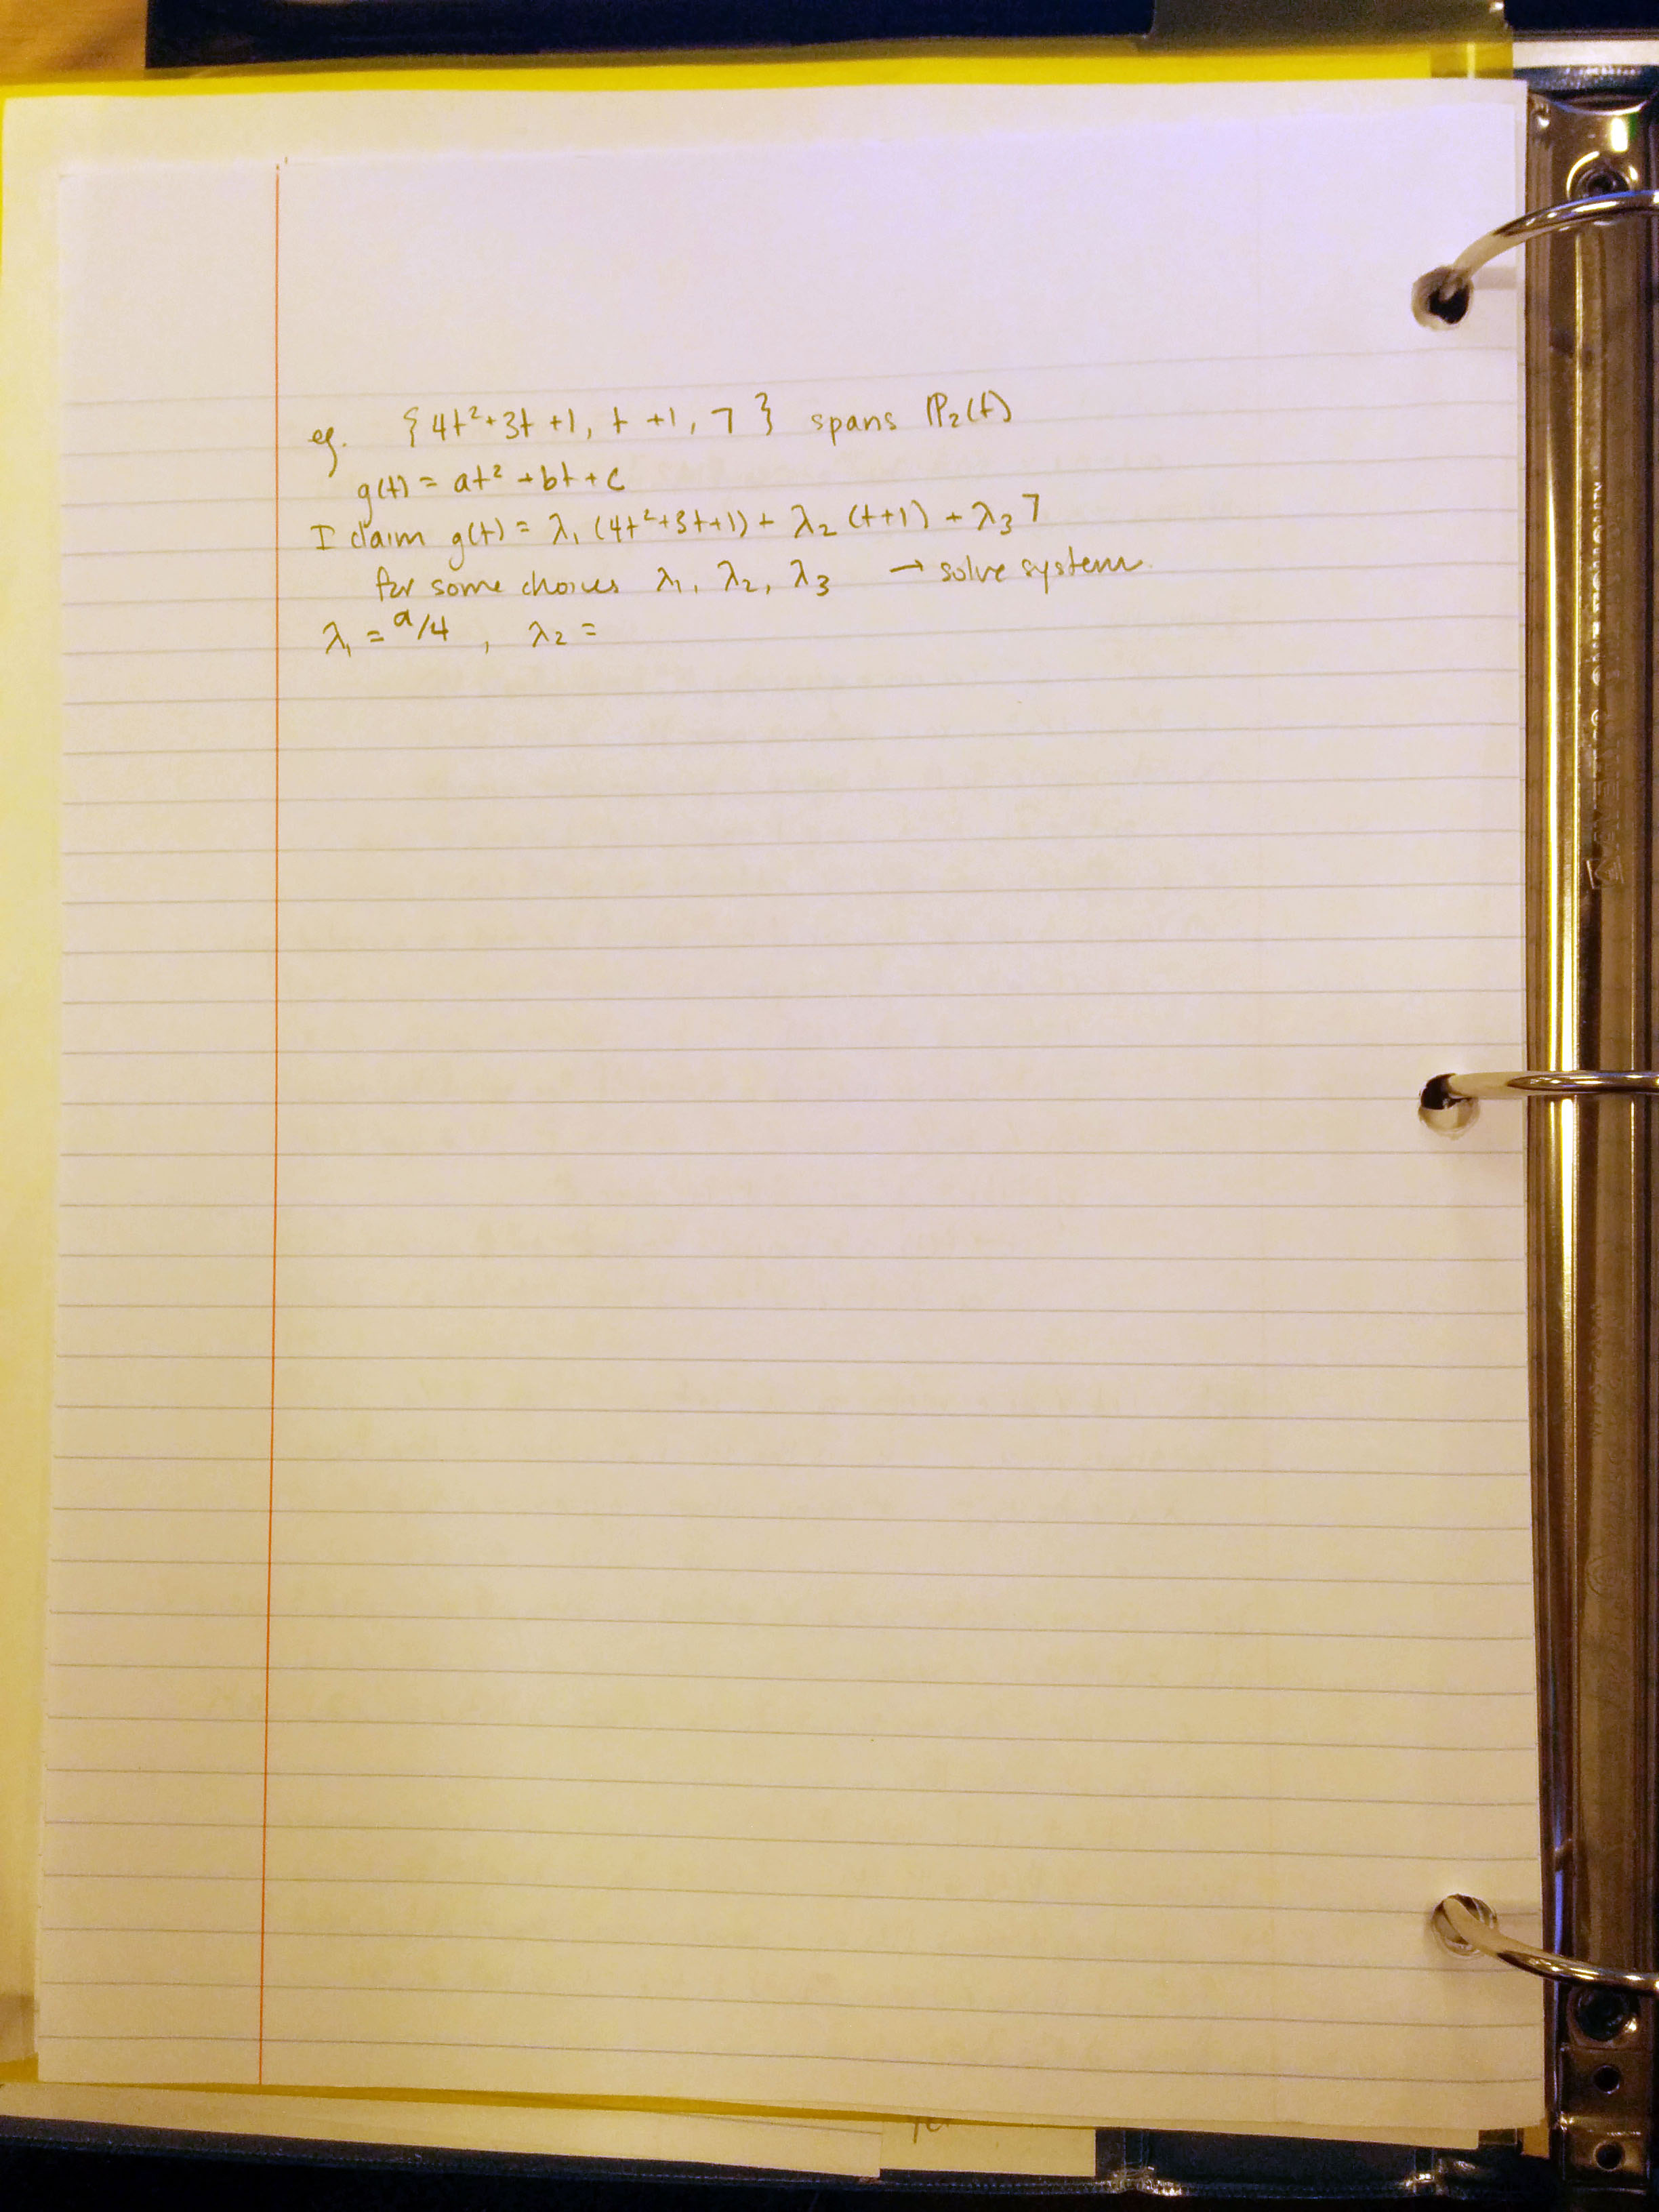 eg. {4t²+3t+1, t+1, 7} spans ℙ₂(t)
g(t) = at²+bt+c
I claim g(t) = λ₁(4t²+3t+1) + λ₂(t+1) + λ₃7
for some choices λ₁, λ₂, λ₃ → solve system.
λ₁ = a/4, λ₂ =